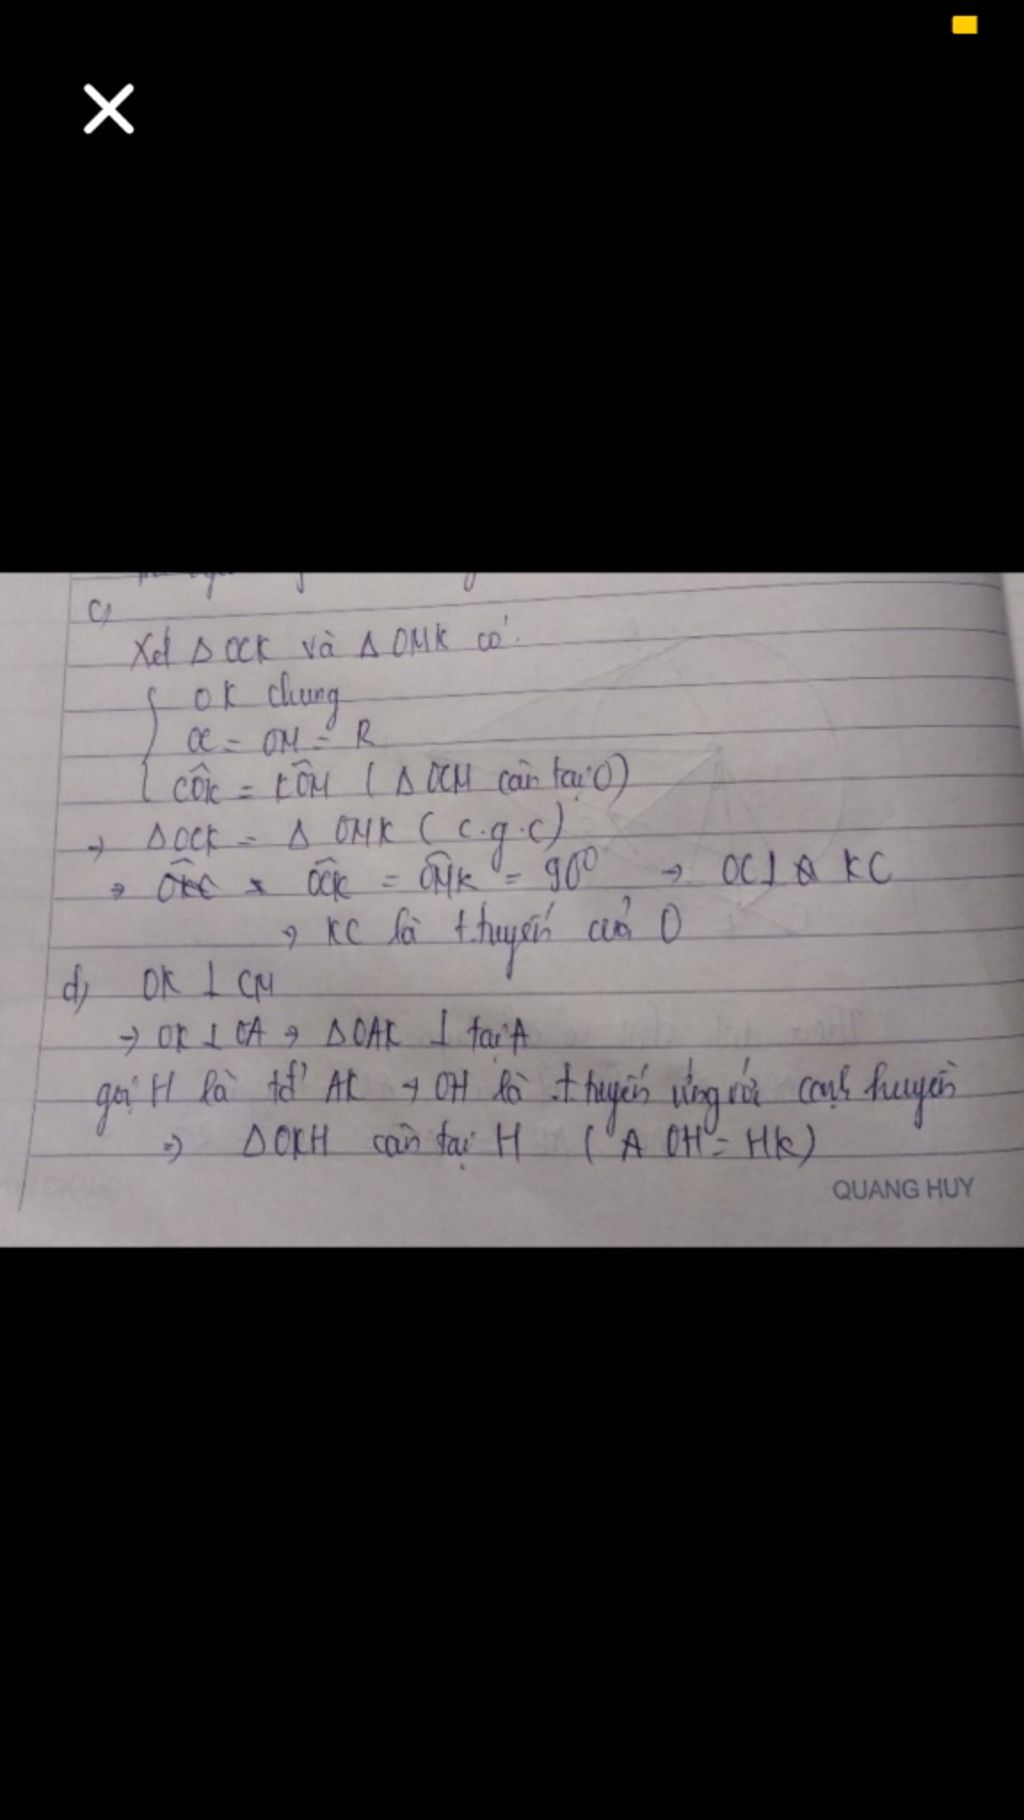 c)
Xét Δ OCK và Δ OMK có:
OK chung
OC = OM = R
CÔK = KÔM ( Δ OCM cân tại O)
→ ΔOCK = Δ OMK ( c.g.c)
→ OCK = OMK = 90⁰ → OC ⊥ KC
→ KC là t.tuyến của O
d) OK ⊥ CM
→ OK ⊥ OA → ΔOAK ⊥ tại A
gọi H là tđ' AK → OH là t.tuyến ứng với cạnh huyền
→ ΔOKH cân tại H ( OH = HK)
QUANG HUY